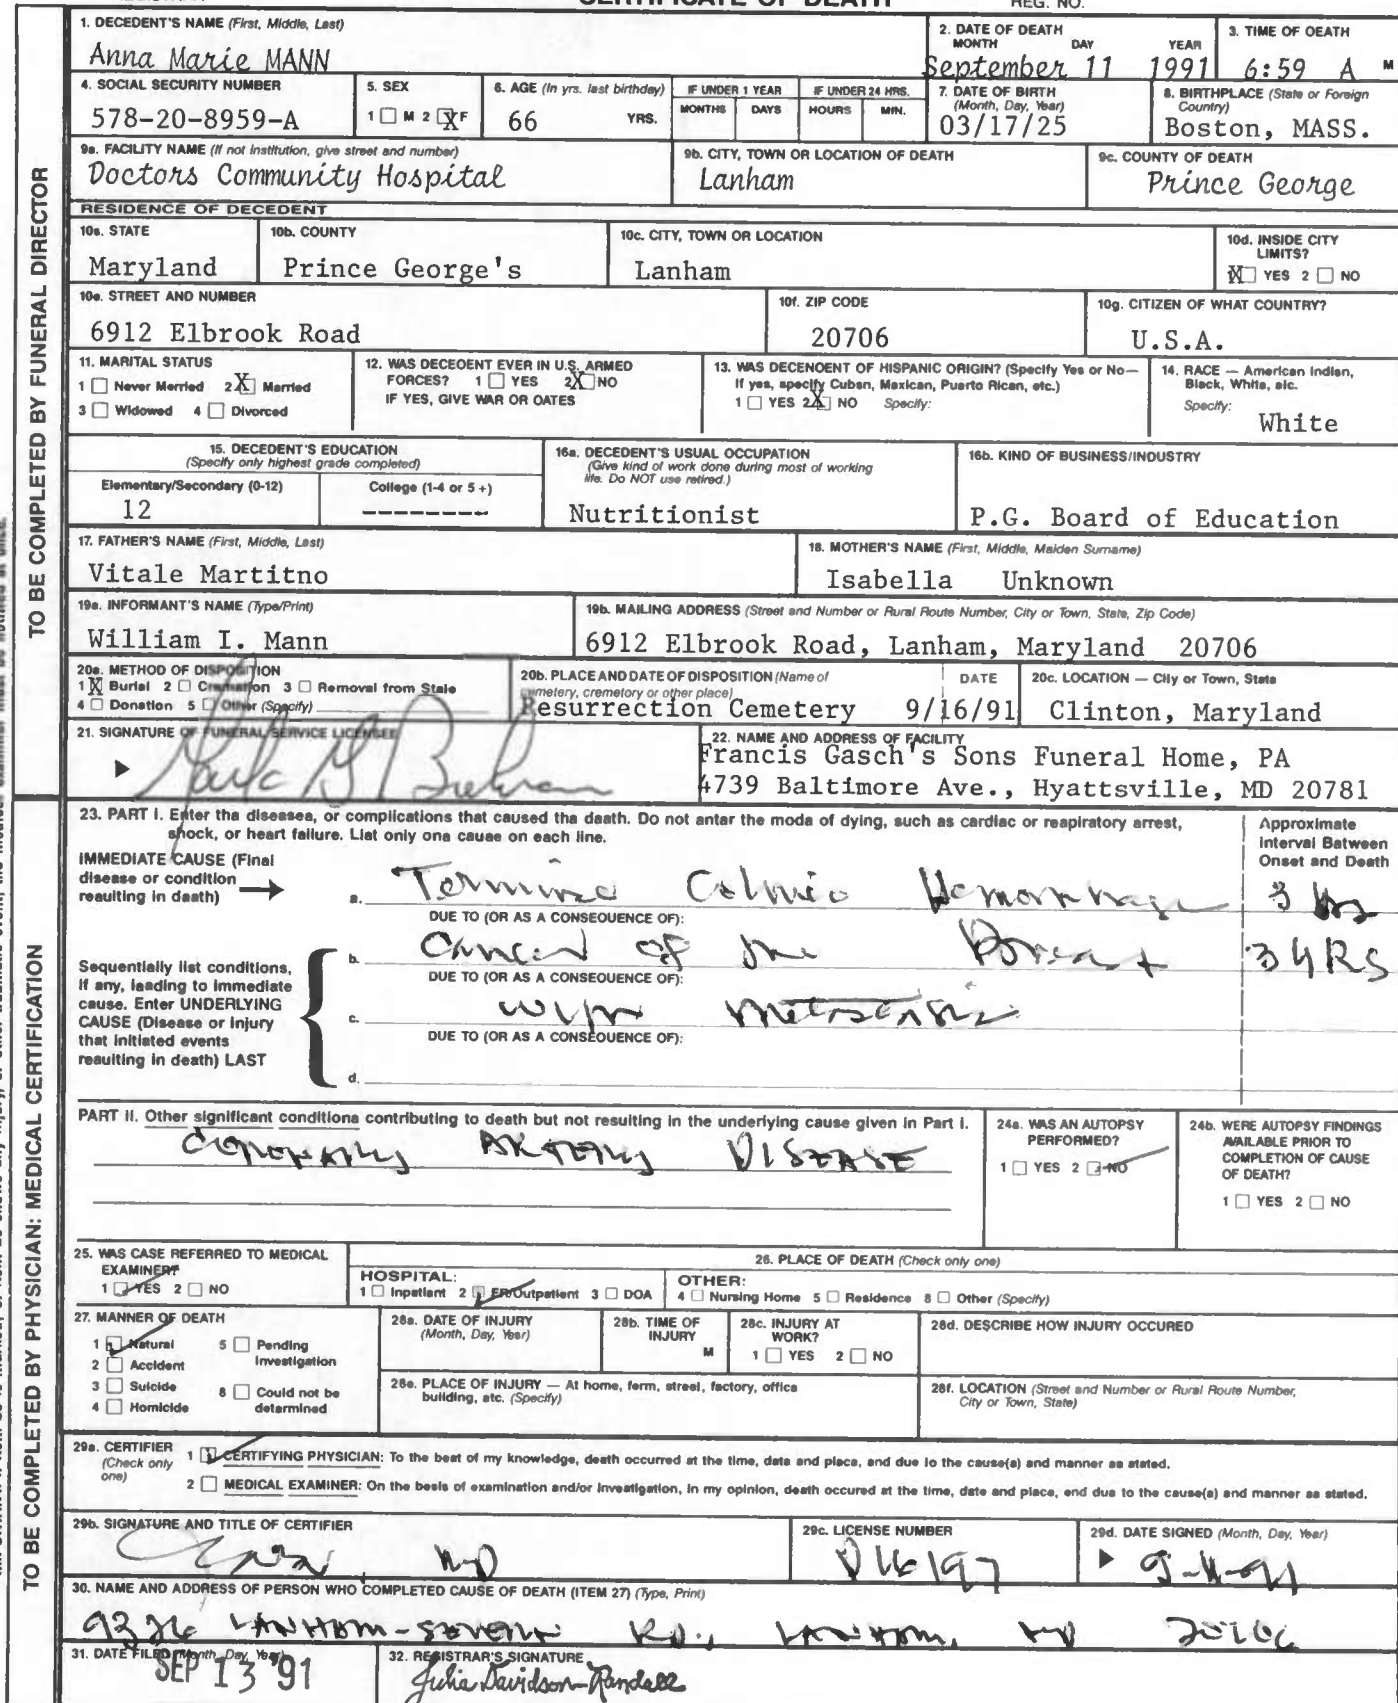 CERTIFICATE OF DEATH REG. NO.
1. DECEDENT'S NAME (First, Middle, Last)
Anna Marie MANN
2. DATE OF DEATH
MONTH DAY YEAR
September 11 1991
3. TIME OF DEATH
6:59 A M
4. SOCIAL SECURITY NUMBER
578-20-8959-A
5. SEX
1 M 2 X F
6. AGE (In yrs. last birthday)
66 YRS.
IF UNDER 1 YEAR
MONTHS DAYS
IF UNDER 24 HRS.
HOURS MIN.
7. DATE OF BIRTH
(Month, Day, Year)
03/17/25
8. BIRTHPLACE (State or Foreign
Country)
Boston, MASS.
9a. FACILITY NAME (If not institution, give street and number)
Doctors Community Hospital
9b. CITY, TOWN OR LOCATION OF DEATH
Lanham
9c. COUNTY OF DEATH
Prince George
RESIDENCE OF DECEDENT
10a. STATE
Maryland
10b. COUNTY
Prince George's
10c. CITY, TOWN OR LOCATION
Lanham
10d. INSIDE CITY
LIMITS?
X YES 2 NO
10e. STREET AND NUMBER
6912 Elbrook Road
10f. ZIP CODE
20706
10g. CITIZEN OF WHAT COUNTRY?
U.S.A.
11. MARITAL STATUS
1 Never Married 2 X Married
3 Widowed 4 Divorced
12. WAS DECEDENT EVER IN U.S. ARMED
FORCES? 1 YES 2 X NO
IF YES, GIVE WAR OR DATES
13. WAS DECENDENT OF HISPANIC ORIGIN? (Specify Yes or No—
If yes, specify Cuban, Mexican, Puerto Rican, etc.)
1 YES 2 X NO Specify:
14. RACE — American Indian,
Black, White, etc.
Specify:
White
15. DECEDENT'S EDUCATION
(Specify only highest grade completed)
Elementary/Secondary (0-12)
12
College (1-4 or 5 +)
--------
16a. DECEDENT'S USUAL OCCUPATION
(Give kind of work done during most of working
life. Do NOT use retired.)
Nutritionist
16b. KIND OF BUSINESS/INDUSTRY
P.G. Board of Education
17. FATHER'S NAME (First, Middle, Last)
Vitale Martitno
18. MOTHER'S NAME (First, Middle, Maiden Surname)
Isabella Unknown
19a. INFORMANT'S NAME (Type/Print)
William I. Mann
19b. MAILING ADDRESS (Street and Number or Rural Route Number, City or Town, State, Zip Code)
6912 Elbrook Road, Lanham, Maryland 20706
20a. METHOD OF DISPOSITION
1 X Burial 2 Cremation 3 Removal from State
4 Donation 5 Other (Specify)
20b. PLACE AND DATE OF DISPOSITION (Name of
cemetery, cremetory or other place)
DATE
Resurrection Cemetery 9/16/91
20c. LOCATION — City or Town, State
Clinton, Maryland
21. SIGNATURE OF FUNERAL SERVICE LICENSEE
22. NAME AND ADDRESS OF FACILITY
Francis Gasch's Sons Funeral Home, PA
4739 Baltimore Ave., Hyattsville, MD 20781
TO BE COMPLETED BY FUNERAL DIRECTOR
23. PART I. Enter the diseases, or complications that caused the death. Do not enter the mode of dying, such as cardiac or respiratory arrest,
shock, or heart failure. List only one cause on each line.
Approximate
Interval Between
Onset and Death
IMMEDIATE CAUSE (Final
disease or condition
resulting in death)
a. Hemorrhage 3
DUE TO (OR AS A CONSEQUENCE OF):
b. Cancer of the Breast 3 YRS
DUE TO (OR AS A CONSEQUENCE OF):
c. with metastasis
DUE TO (OR AS A CONSEQUENCE OF):
d.
Sequentially list conditions,
if any, leading to immediate
cause. Enter UNDERLYING
CAUSE (Disease or injury
that initiated events
resulting in death) LAST
PART II. Other significant conditions contributing to death but not resulting in the underlying cause given in Part I.
CORONARY ARTERY DISEASE
24a. WAS AN AUTOPSY
PERFORMED?
1 YES 2 NO
24b. WERE AUTOPSY FINDINGS
AVAILABLE PRIOR TO
COMPLETION OF CAUSE
OF DEATH?
1 YES 2 NO
25. WAS CASE REFERRED TO MEDICAL
EXAMINER?
1 YES 2 NO
26. PLACE OF DEATH (Check only one)
HOSPITAL:
1 Inpatient 2 ER/Outpatient 3 DOA
OTHER:
4 Nursing Home 5 Residence 6 Other (Specify)
27. MANNER OF DEATH
1 Natural 5 Pending
Investigation
2 Accident
3 Suicide 6 Could not be
determined
4 Homicide
28a. DATE OF INJURY
(Month, Day, Year)
28b. TIME OF
INJURY
M
28c. INJURY AT
WORK?
1 YES 2 NO
28d. DESCRIBE HOW INJURY OCCURED
28e. PLACE OF INJURY — At home, farm, street, factory, office
building, etc. (Specify)
28f. LOCATION (Street and Number or Rural Route Number,
City or Town, State)
29a. CERTIFIER
(Check only
one)
1 CERTIFYING PHYSICIAN: To the best of my knowledge, death occurred at the time, date and place, and due to the cause(s) and manner as stated.
2 MEDICAL EXAMINER: On the basis of examination and/or investigation, in my opinion, death occured at the time, date and place, and due to the cause(s) and manner as stated.
29b. SIGNATURE AND TITLE OF CERTIFIER
MD
29c. LICENSE NUMBER
D16197
29d. DATE SIGNED (Month, Day, Year)
9-11-91
30. NAME AND ADDRESS OF PERSON WHO COMPLETED CAUSE OF DEATH (ITEM 27) (Type, Print)
9326 LANHAM-SEVERN RD., LANHAM, MD 20706
31. DATE FILED (Month, Day, Year)
SEP 13 '91
32. REGISTRAR'S SIGNATURE
Julia Davidson-Randall
TO BE COMPLETED BY PHYSICIAN: MEDICAL CERTIFICATION